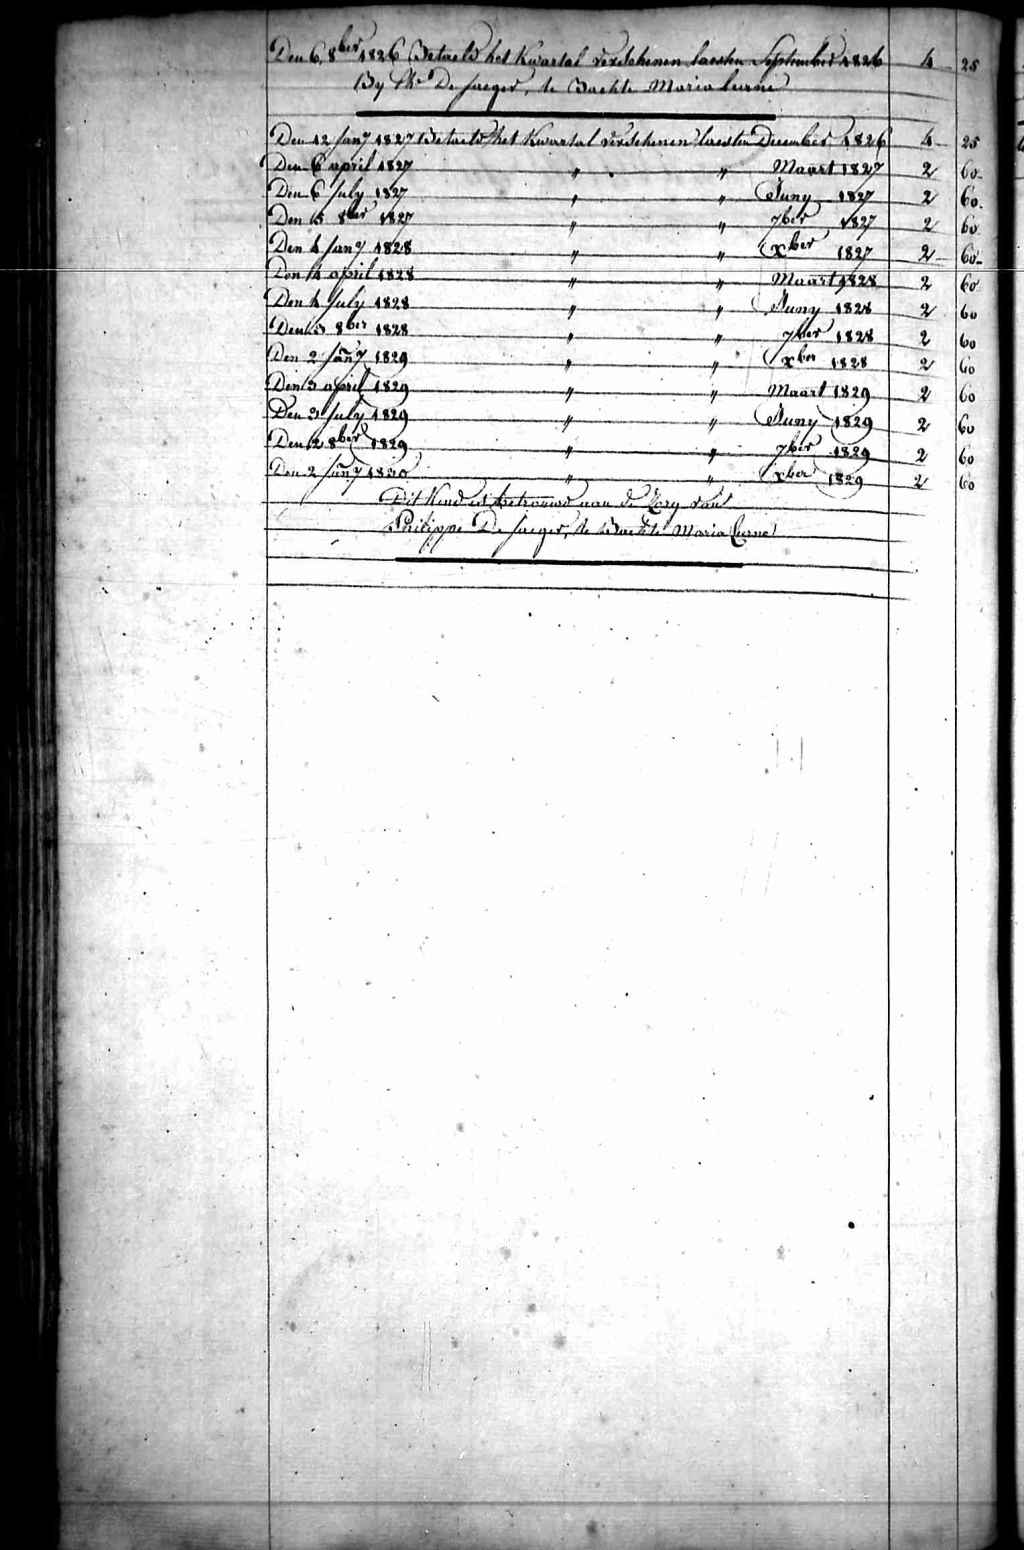 Den 6 8ber 1826 Betaeld het Kwartal verschenen laesten September 1826 4 25
By Phe De Jaeger, te Bachte Maria leerne
Den 12 Jany 1827 Betaeld het Kwartal verschenen laesten December 1826 4 25
Den 6 april 1827 " " Maart 1827 2 60
Den 6 July 1827 " " Juny 1827 2 60
Den 5 8ber 1827 " " 7ber 1827 2 60
Den 4 Jany 1828 " " xber 1827 2 60
Den 4 april 1828 " " Maart 1828 2 60
Den 4 July 1828 " " Juny 1828 2 60
Den 3 8ber 1828 " " 7ber 1828 2 60
Den 2 Jany 1829 " " xber 1828 2 60
Den 3 april 1829 " " Maart 1829 2 60
Den 3 July 1829 " " Juny 1829 2 60
Den 2 8ber 1829 " " 7ber 1829 2 60
Den 2 Jany 1830 " " xber 1829 2 60
Dit Kind is betrouwd aan de Zorg van
Philippe De Jaeger, te Bachte Maria Leerne